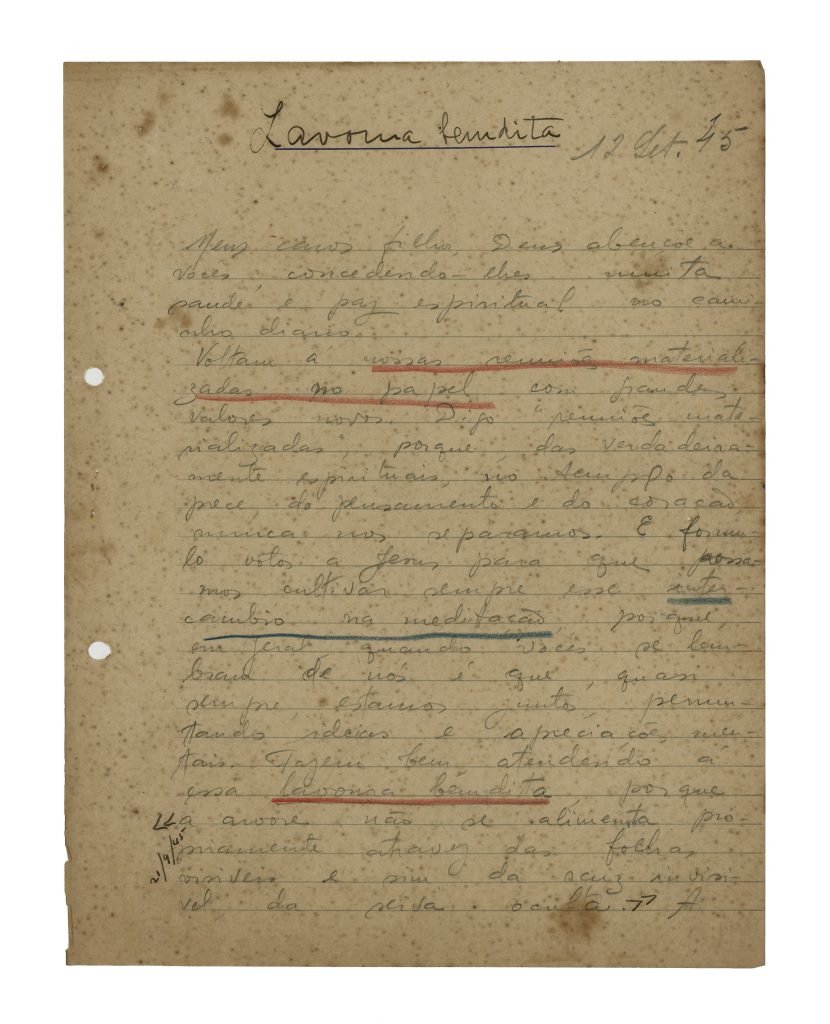 Lavoura bendita
12 Set. 45
Meus caros filhos, Deus abençoe a
vocês, concedendo-lhes muita
saude e paz espiritual no cami-
nho diario.
Voltam á nossas reuniões materiali-
zadas no papel com grandes
valores novos. Digo "reuniões mate-
rializadas", porque, das verdadeira-
mente espirituais, no templo da
prece, do pensamento e do coração
nunca nos separamos. E formu-
lo votos a Jesus para que possa-
mos cultivar sempre esse inter-
cambio na meditação, porque,
em geral, quando vocês se lem-
bram de nós é que, quasi
sempre, estamos juntos, permu-
tando ideias e apreciações men-
tais. Fazem bem atendendo á
essa lavoura bendita, porque
<<a arvore não se alimenta pro-
priamente atravez das folhas
visiveis e sim da raiz invisi-
vel, da seiva oculta.>> A
21/9/45